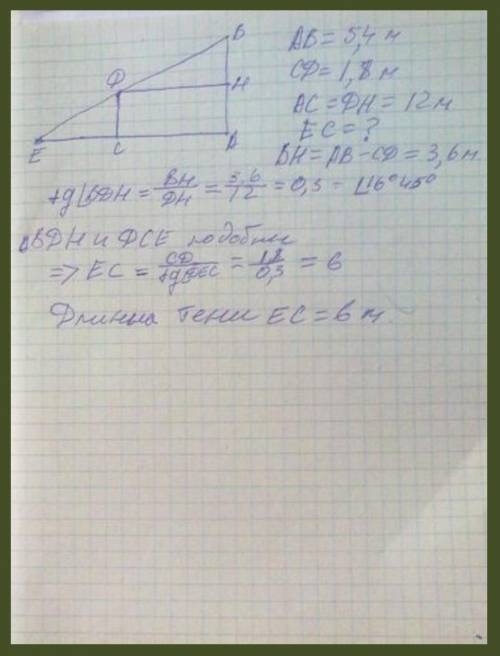 B
Ф
H
E
C
A
AB = 5,4 м
СФ = 1,8 м
AC = ФH = 12 м
EC = ?
BH = AB - СФ = 3,6 м
tg∠BФH = BH/ФH = 3,6/12 = 0,3 - ∠16°45°
ΔBФH и ФCE подобны
=> EC = СФ/tgФEC = 1,8/0,3 = 6
Длинна тени EC = 6 м